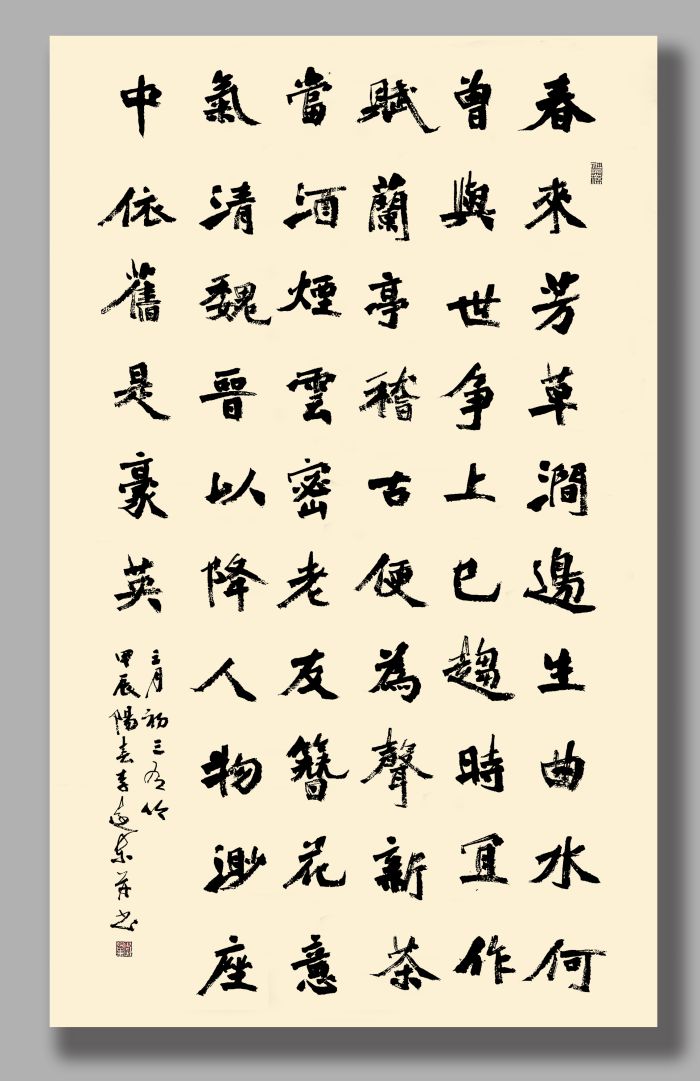 春來芳草澗邊生曲水何
曾與世爭上巳趨時宜作
賦蘭亭稽古便為聲新茶
當酒煙雲密老友簪花意
氣清魏晉以降人物渺座
中依舊是豪英
三月初三有吟
甲辰陽春李遠東并書